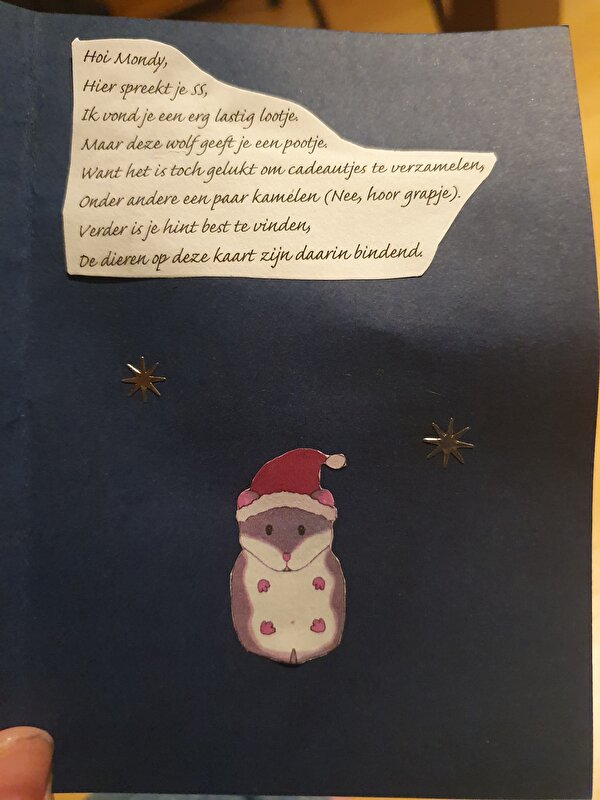 Hoi Mondy,
Hier spreekt je SS,
Ik vond je een erg lastig lootje.
Maar deze wolf geeft je een pootje.
Want het is toch gelukt om cadeautjes te verzamelen,
Onder andere een paar kamelen (Nee, hoor grapje).
Verder is je hint best te vinden,
De dieren op deze kaart zijn daarin bindend.